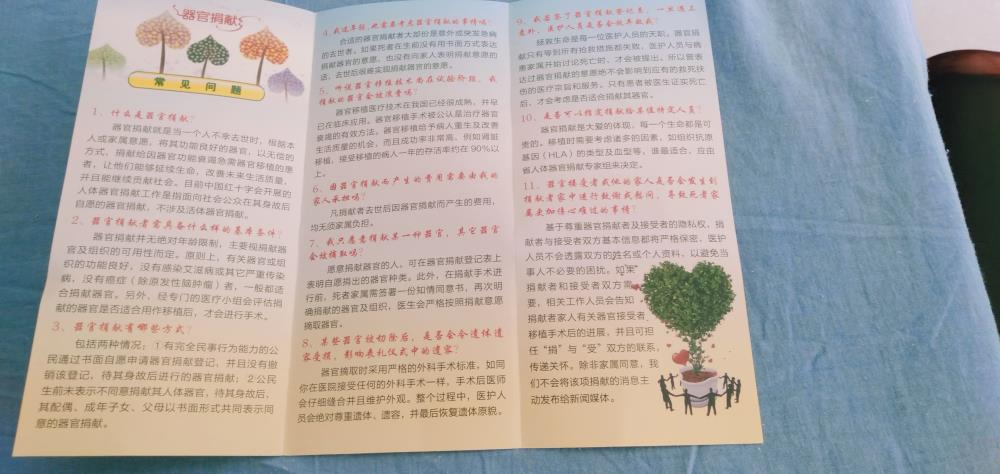 器官捐献
常见问题
1、什么是器官捐献？
器官捐献就是当一个人不幸去世时，根据本
人或家属意愿，将其功能良好的器官，以无偿的
方式，捐献给因器官功能衰竭急需器官移植的患
者，让他们能够延续生命，改善未来生活质量，
并且能继续贡献社会。目前中国红十字会开展的
人体器官捐献工作是指面向社会公众在其身故后
自愿的器官捐献，不涉及活体器官捐献。
2、器官捐献者需具备什么样的基本条件？
器官捐献并无绝对年龄限制，主要视捐献器
官及组织的可用性而定。原则上，有关器官或组
织的功能良好，没有感染艾滋病或其它严重传染
病，没有癌症（除原发性脑肿瘤）者，一般都适
合捐献器官。另外，经专门的医疗小组会评估捐
献的器官是否适合用作移植后，才会进行手术。
3、器官捐献有哪些方式？
包括两种情况：①有完全民事行为能力的公
民通过书面自愿申请器官捐献登记，并且没有撤
销该登记，待其身故后进行的器官捐献；②公民
生前未表示不同意捐献其人体器官，待其身故后，
其配偶、成年子女、父母以书面形式共同表示同
意的器官捐献。
4、我还年轻，也需要考虑器官捐献的事情吗？
合适的器官捐献者大部份是意外或突发急病
的去世者。如果死者在生前没有用书面方式表达
捐献器官的意愿，也没有向家人表明捐献意愿的
话，去世后很难实现捐献器官的意愿。
5、听说器官移植技术尚在试验阶段，我
捐献的器官会被浪费吗？
器官移植医疗技术在我国已经很成熟，并早
已在临床应用。器官移植手术被公认是治疗器官
衰竭的有效方法。器官移植给予病人重生及改善
生活质量的机会，而且成功率非常高，例如肾脏
移植，接受移植的病人一年的存活率约在90%以
上。
6、因器官捐献而产生的费用需要由我的
家人承担吗？
凡捐献者去世后因器官捐献而产生的费用，
均无须家属负担。
7、我只愿意捐献某一种器官，其它器官
会被摘取吗？
愿意捐献器官的人，可在器官捐献登记表上
表明自愿捐出的器官种类。此外，在捐献手术进
行前，死者家属需签署一份知情同意书，再次明
确捐献的器官及组织，医生会严格按照捐献意愿
摘取器官。
8、某些器官被切除后，是否会令遗体遭
家受损，影响丧礼仪式中的遗容？
器官摘取时采用严格的外科手术标准，如同
你在医院接受任何的外科手术一样，手术后医师
会仔细缝合并且维护外观。整个过程中，医护人
员会绝对尊重遗体、遗容，并最后恢复遗体原貌。
9、我若签了器官捐献登记表，一旦遇上
意外，医护人员是否会放弃救我？
拯救生命是每一位医护人员的天职。器官捐
献只有等到所有抢救措施都失败，医护人员与病
患家属开始讨论死亡时，才会被提出，所以曾表
达过器官捐献的意愿绝不会影响到应有的救死扶
伤的医疗宗旨和服务。只有患者被医生证实死亡
后，才会考虑是否适合捐献其器官。
10、是否可以指定捐献给某位特定人员？
器官捐献是大爱的体现，每一个生命都是可
贵的。移植时需要考虑诸多的因素，如组织抗原
基因（HLA）的类型及血型等。谁最适合，应由
省人体器官捐献专家组来决定。
11、器官接受者或他的家人是否会受到
捐献者家中进行致谢或慰问，导致死者家
属更加伤心难过的事情？
基于尊重器官捐献者及接受者的隐私权，捐
献者与接受者双方基本信息都将严格保密，医护
人员不会透露双方的姓名或个人资料，以避免当
事人不必要的困扰。如果
捐献者和接受者双方需
要，相关工作人员会告知
捐献者家人有关器官接受者
移植手术后的进展，并且可担
任“捐”与“受”双方的联系，
传递关怀。除非家属同意，我
们不会将该项捐献的消息主
动发布给新闻媒体。